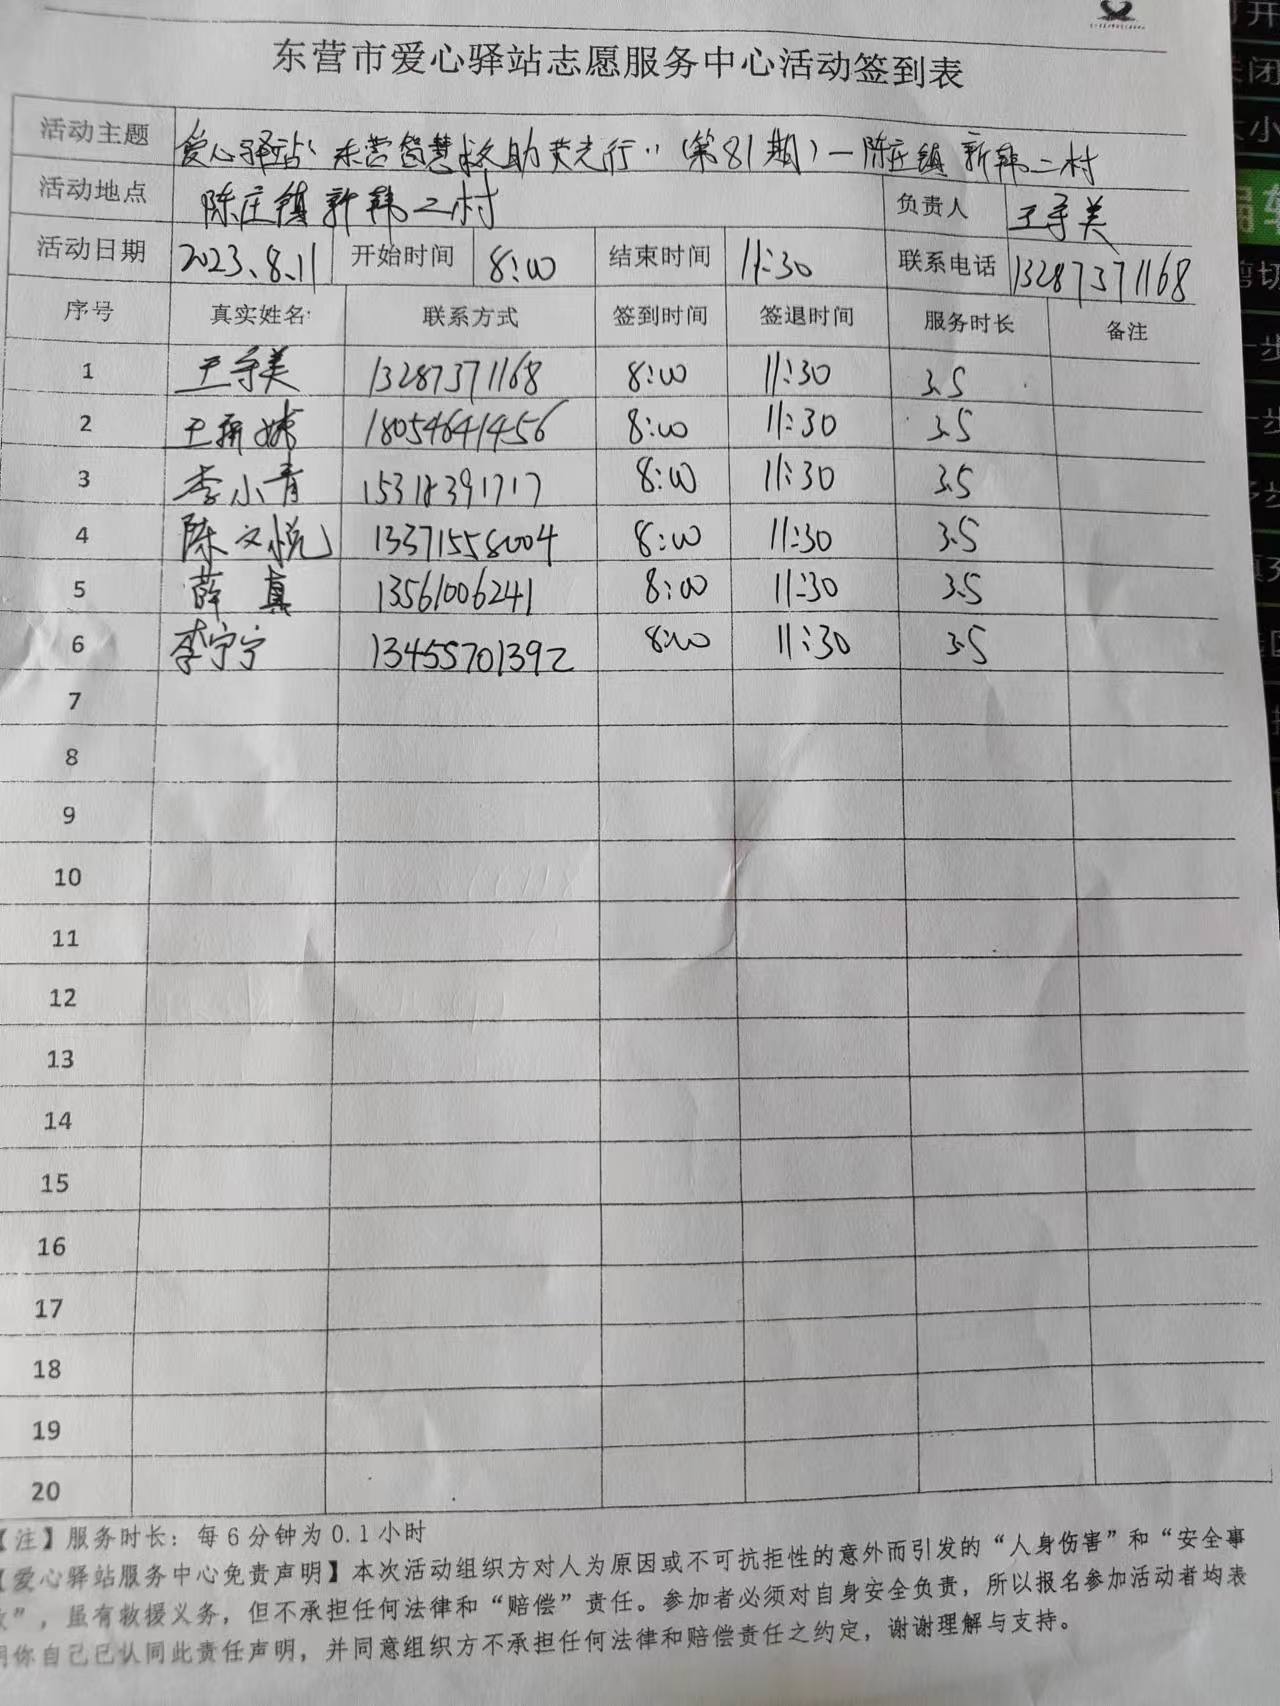 东营市爱心驿站志愿服务中心活动签到表
活动主题 爱心驿站“东营智慧救助荧光行”（第81期）—陈庄镇新韩二村
活动地点 陈庄镇新韩二村 负责人 王守美
活动日期 2023.8.11 开始时间 8:00 结束时间 11:30 联系电话 13287371168
序号 真实姓名 联系方式 签到时间 签退时间 服务时长 备注
1 王守美 13287371168 8:00 11:30 3.5
2 王 18054641456 8:00 11:30 3.5
3 李小青 15318391717 8:00 11:30 3.5
4 陈文悦 13371558004 8:00 11:30 3.5
5 薛真 13561006241 8:00 11:30 3.5
6 李宁宁 13455701392 8:00 11:30 3.5
7
8
9
10
11
12
13
14
15
16
17
18
19
20
【注】服务时长：每6分钟为0.1小时
【爱心驿站服务中心免责声明】本次活动组织方对人为原因或不可抗拒性的意外而引发的“人身伤害”和“安全事
故”，虽有救援义务，但不承担任何法律和“赔偿”责任。参加者必须对自身安全负责，所以报名参加活动者均表
明你自己已认同此责任声明，并同意组织方不承担任何法律和赔偿责任之约定，谢谢理解与支持。